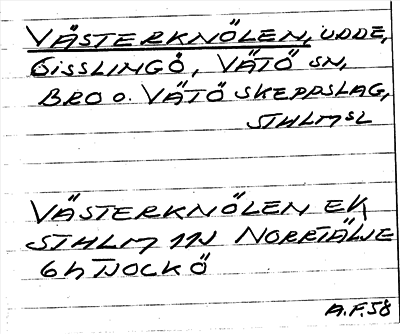 VÄSTERKNÖLEN, UDDE,
GISSLINGÖ, VÄTÖ SN,
BRO O. VÄTÖ SKEPPSLAG,
STHLMSL
VÄSTERKNÖLEN EK
STHLM 11N NORRTÄLJE
6h TJOCKÖ
A.F.58